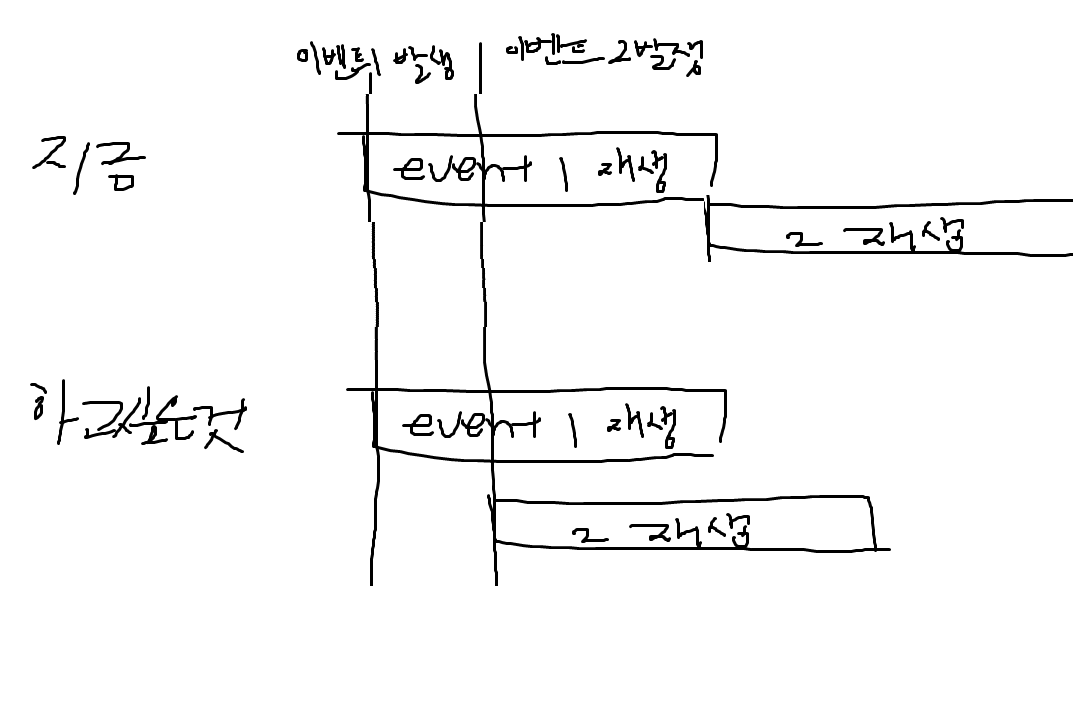 이벤트1 발생 이벤트 2발생
지금
event 1 재생
2 재생
하고싶은것
event 1 재생
2 재생